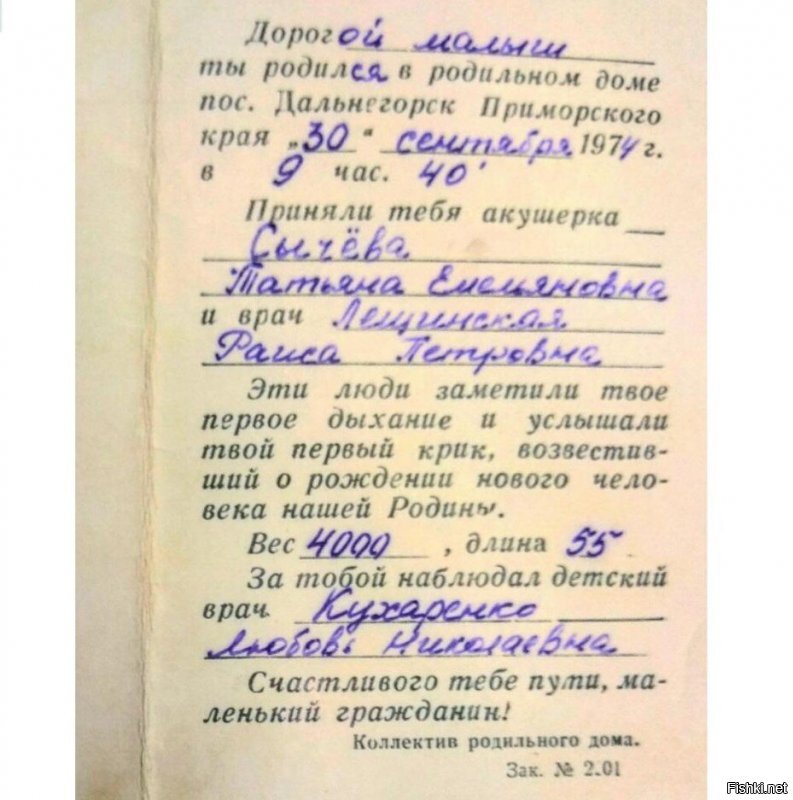 Дорогой малыш
ты родился в родильном доме
пос. Дальнегорск Приморского
края „30" сентября 1974 г.
в 9 час. 40'
Приняли тебя акушерка
Сычёва
Татьяна Емельяновна
и врач Лещинская
Раиса Петровна
Эти люди заметили твое
первое дыхание и услышали
твой первый крик, возвестив-
ший о рождении нового чело-
века нашей Родины.
Вес 4000, длина 55
За тобой наблюдал детский
врач Кухаренко
Любовь Николаевна
Счастливого тебе пути, ма-
ленький гражданин!
Коллектив родильного дома.
Зак. № 2.01
Fishki.net